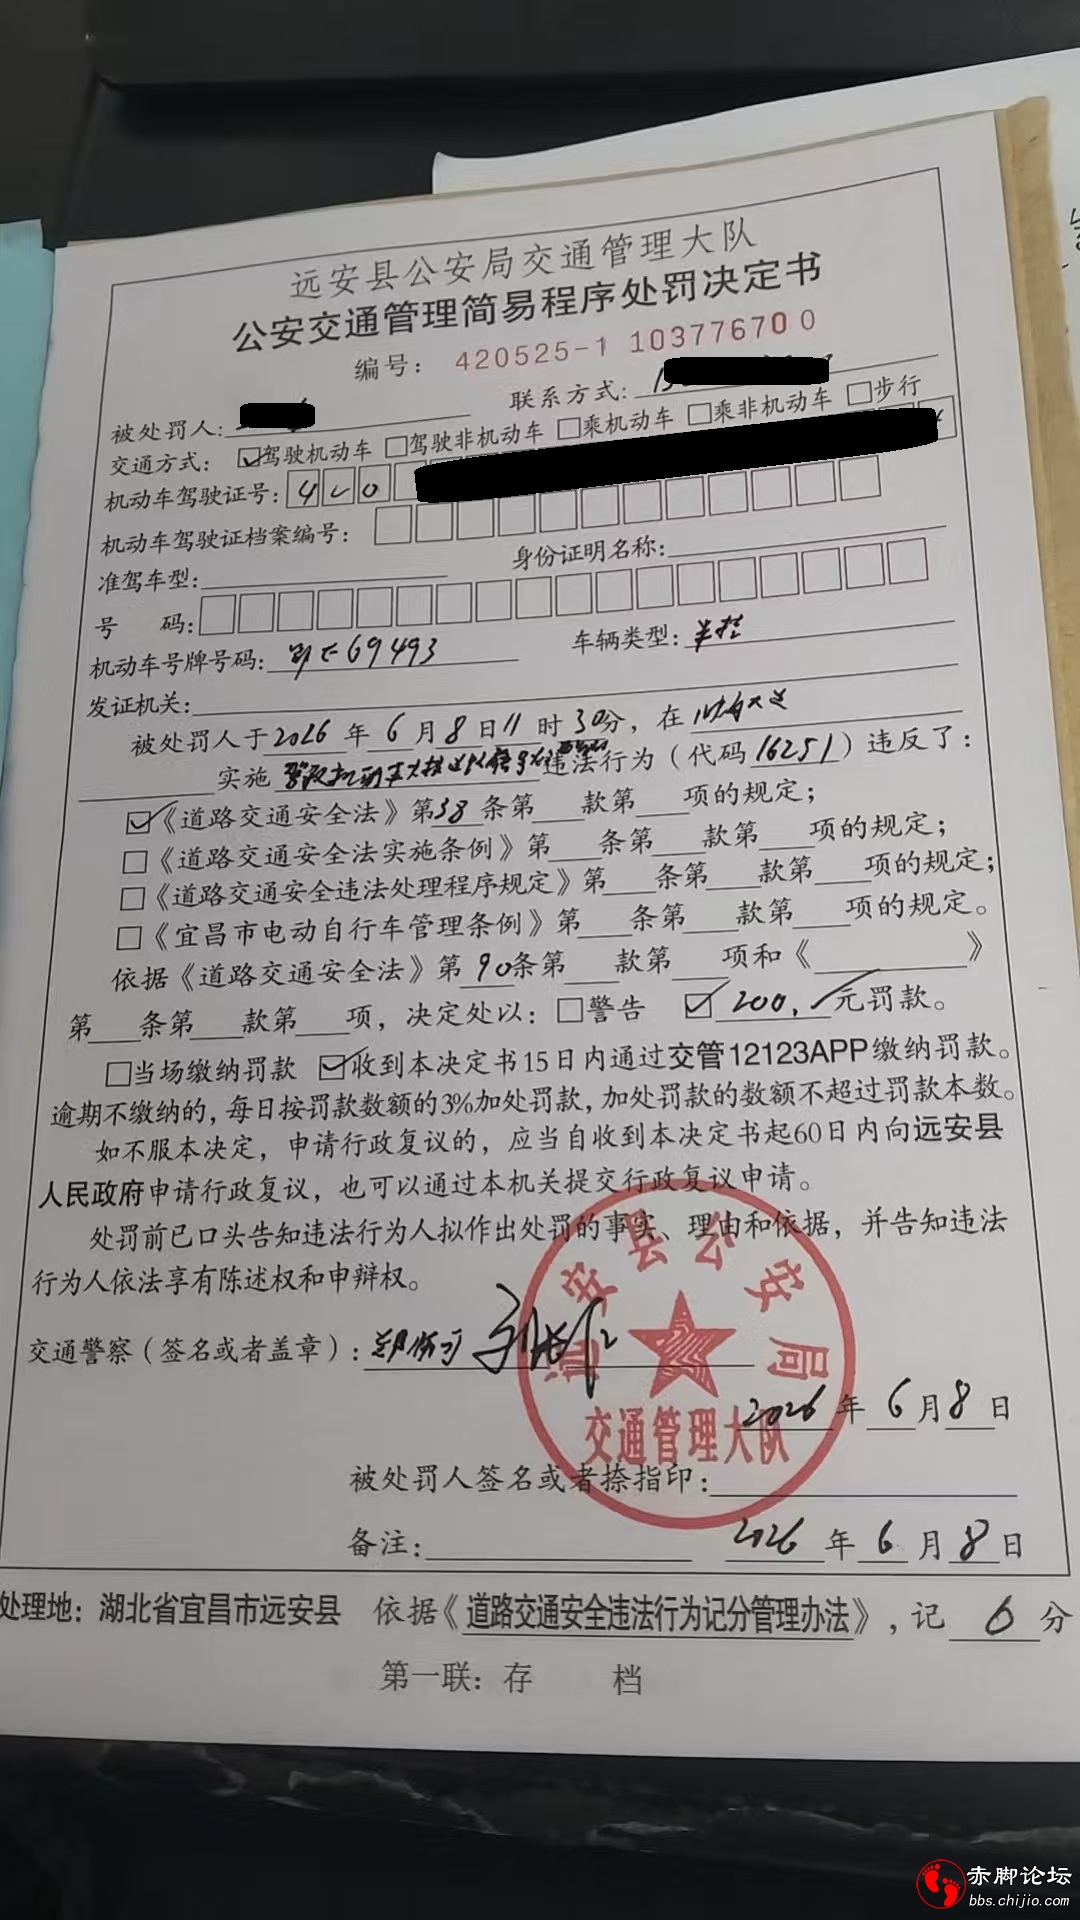 远安县公安局交通管理大队
公安交通管理简易程序处罚决定书
编号: 420525-1 103776700
被处罚人: 联系方式: 1
交通方式: ☑驾驶机动车 □驾驶非机动车 □乘机动车 □乘非机动车 □步行
机动车驾驶证号: 420
机动车驾驶证档案编号:
准驾车型: 身份证明名称:
号 码:
机动车号牌号码: 69493 车辆类型: 半挂
发证机关:
被处罚人于2026年6月8日11时30分,在
实施 违法行为(代码16251)违反了:
☑《道路交通安全法》第38条第 款第 项的规定;
□《道路交通安全法实施条例》第 条第 款第 项的规定;
□《道路交通安全违法处理程序规定》第 条第 款第 项的规定;
□《宜昌市电动自行车管理条例》第 条第 款第 项的规定。
依据《道路交通安全法》第90条第 款第 项和《 》
第 条第 款第 项,决定处以: □警告 ☑200.元罚款。
□当场缴纳罚款 ☑收到本决定书15日内通过交管12123APP缴纳罚款。
逾期不缴纳的,每日按罚款数额的3%加处罚款,加处罚款的数额不超过罚款本数。
如不服本决定,申请行政复议的,应当自收到本决定书起60日内向远安县
人民政府申请行政复议,也可以通过本机关提交行政复议申请。
处罚前已口头告知违法行为人拟作出处罚的事实、理由和依据,并告知违法
行为人依法享有陈述权和申辩权。
交通警察(签名或者盖章):
远安县公安局
交通管理大队
2026年6月8日
被处罚人签名或者捺指印:
备注: 2026年6月8日
处理地: 湖北省宜昌市远安县 依据《道路交通安全违法行为记分管理办法》,记6分
第一联: 存 档
赤脚论坛
bbs.chijio.com